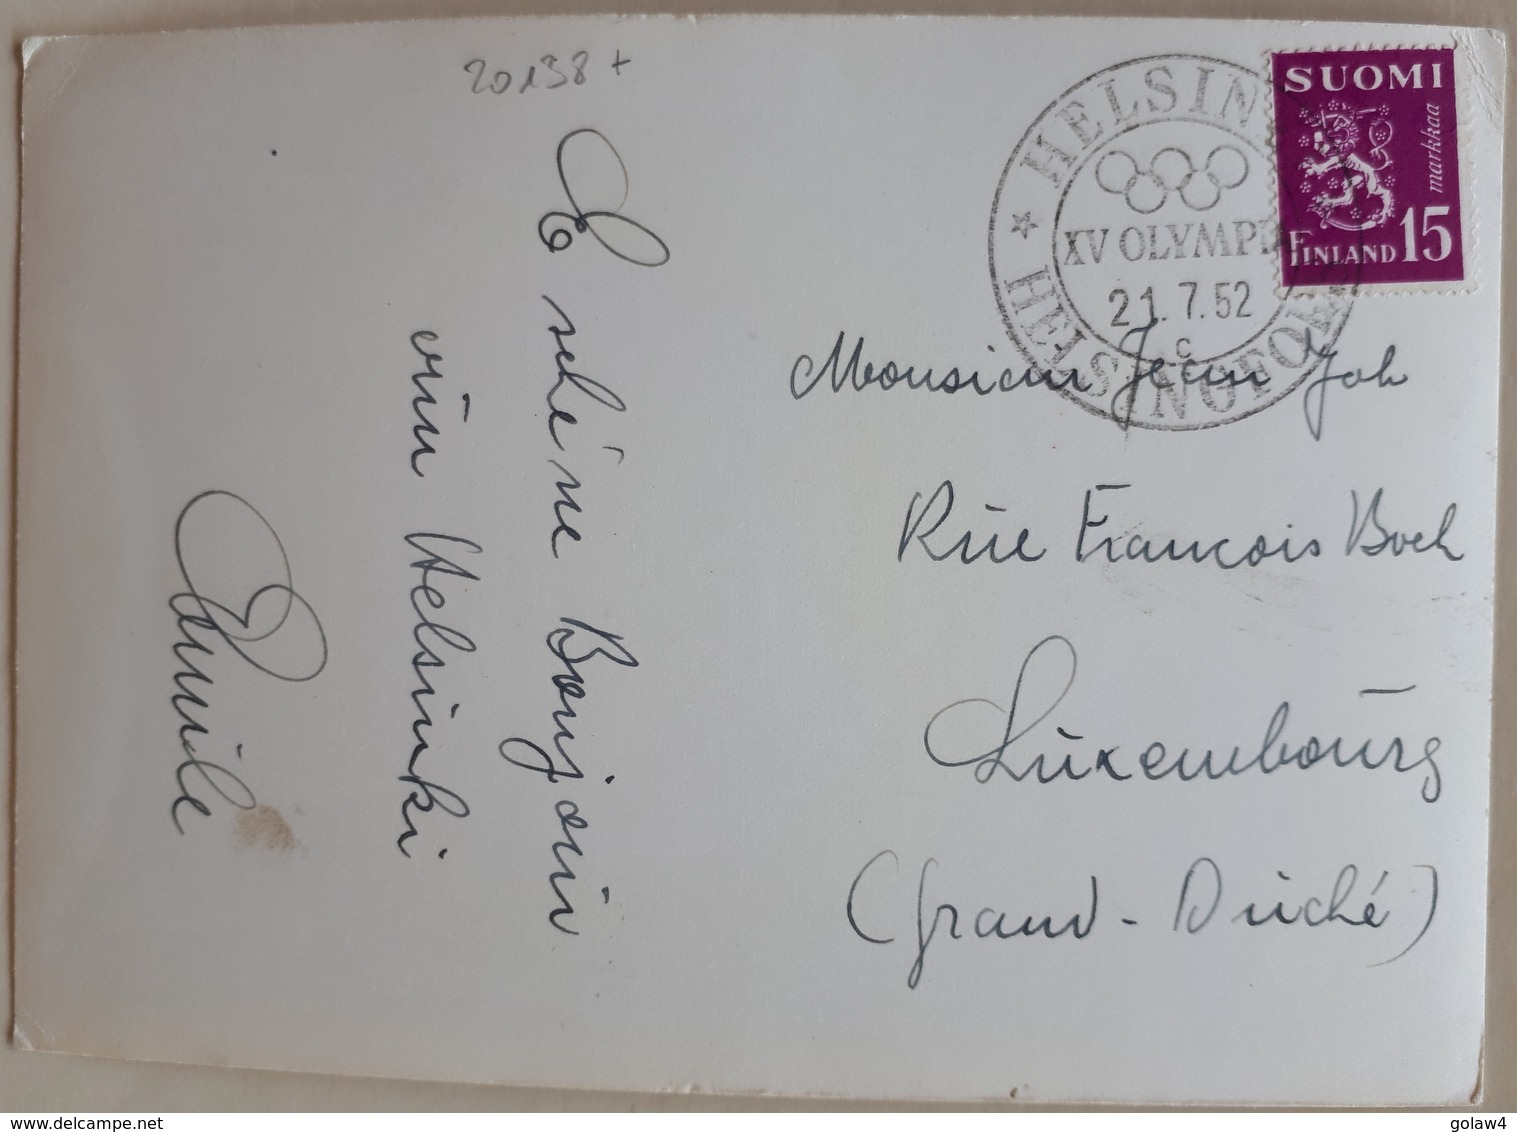 20138+
HELSIN
XV OLYMPI
21.7.52
c
HELSINGFORS
SUOMI
markkaa
FINLAND 15
E schéne Bonjour
vun Helsinki
Emile
Monsieur Jean Joh
Rue Francois Boch
Luxembourg
(Grand-Duché)
www.delcampe.net
golaw4